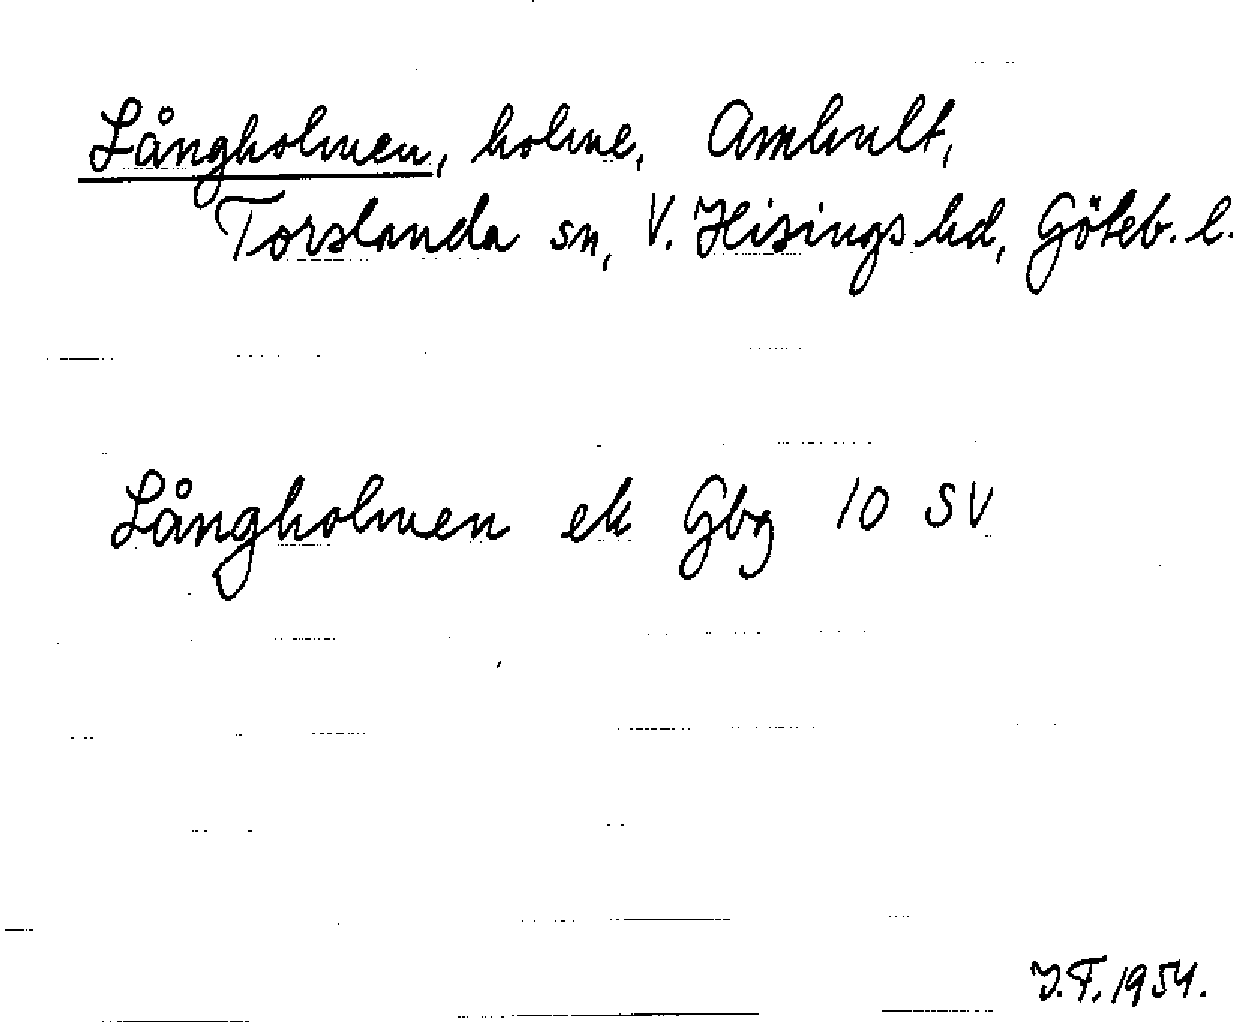 Långholmen, holme, Amhult,
Torslanda sn, V. Hisings hd, Göteb. l.
Långholmen ek Gbg 10 SV
J.F. 1954.